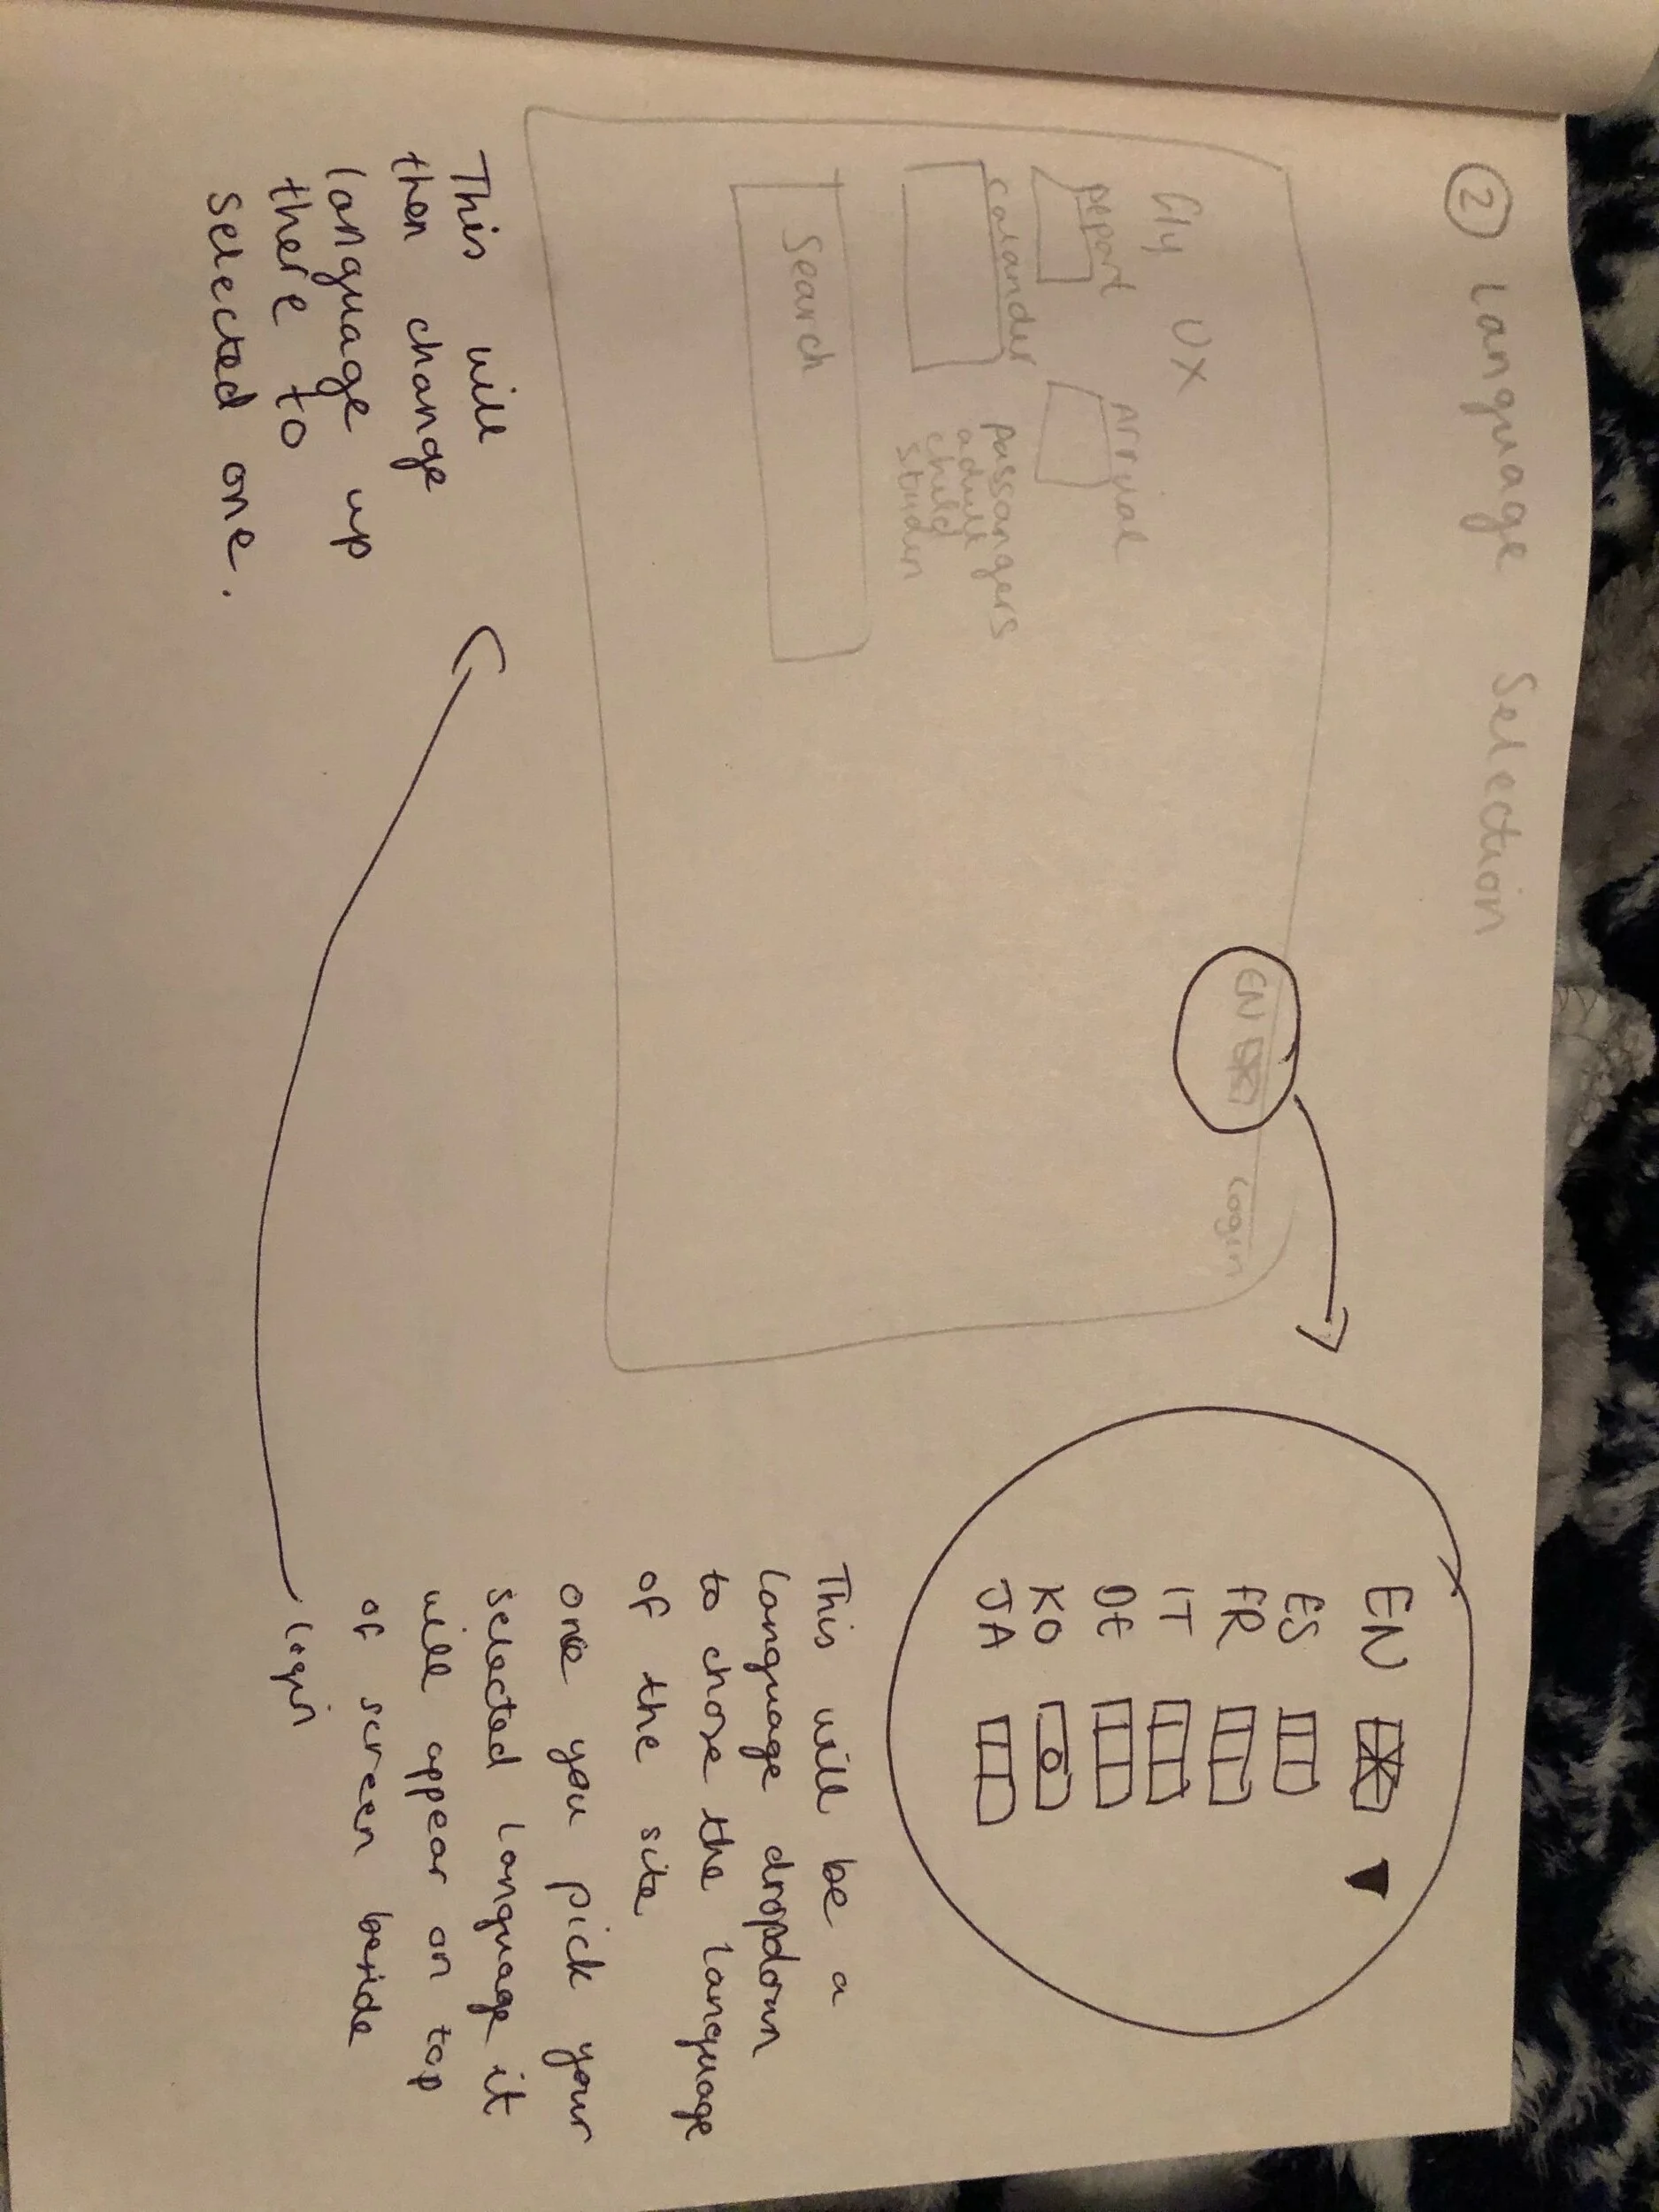 ② Language Selection
EN Login
fly UX
Depart Arrival
calander passangers
adult
child
studen
Search
EN
ES
FR
IT
DE
KO
JA
This will be a
language dropdown
to chose the language
of the site
once you pick your
selected language it
will appear on top
of screen beside
login
This will
then change
language up
there to
selected one.